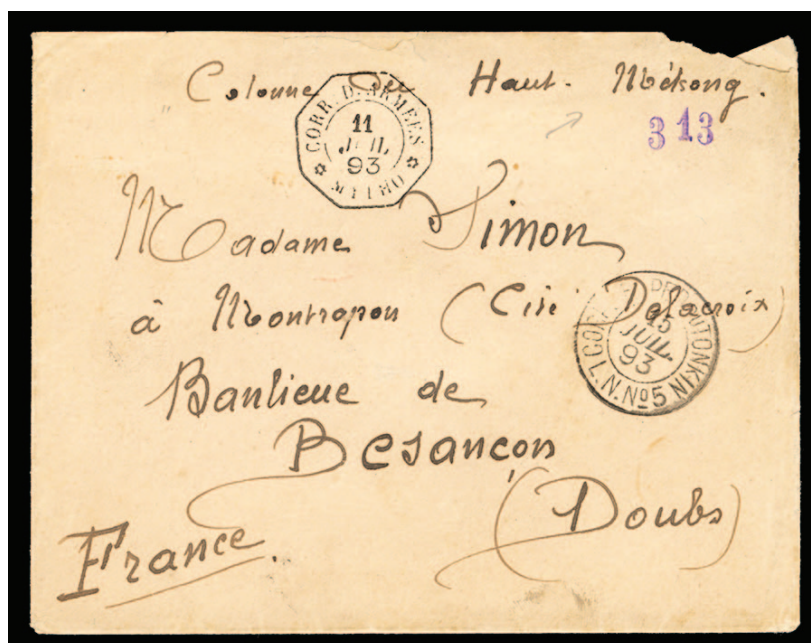 Colonne du Haut. Mékong.
CORR. D. ARMEES
11
JUIL
93
MYTHO
3 13
Madame Simon
à Montrapon (Cité Delacroix)
15
JUIL.
93
L.N. Nº5
Banlieue de
Besançon
(Doubs)
France.